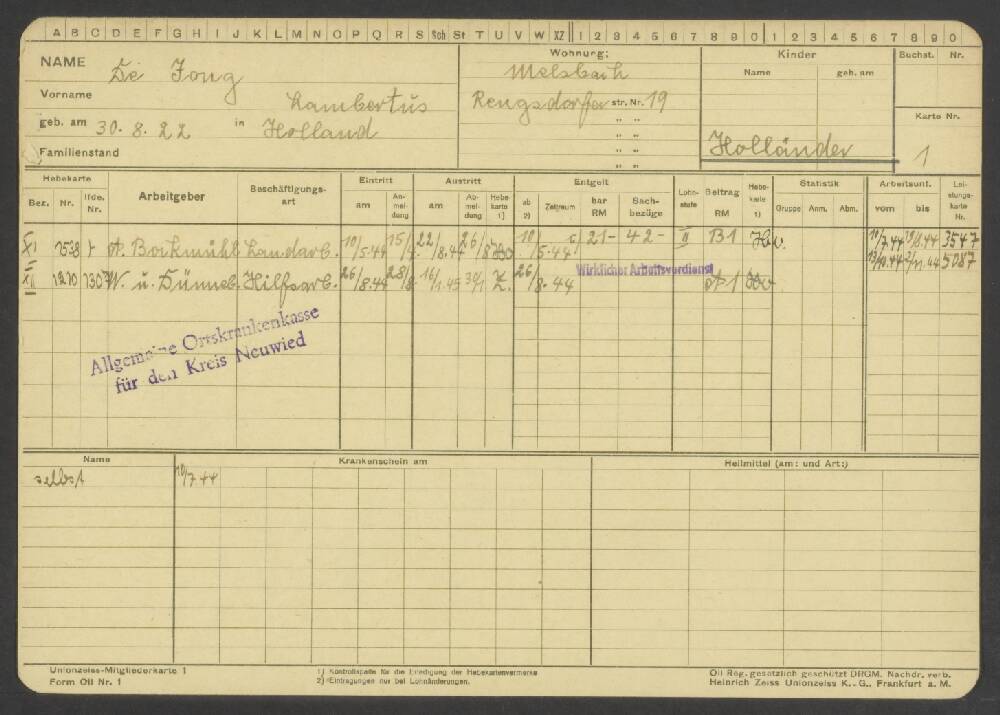 A B C D E F G H I J K L M N O P Q R S Sch St T U V W XZ 1 2 3 4 5 6 7 8 9 0 1 2 3 4 5 6 7 8 9 0
NAME De Jong
Vorname Lambertus
geb. am 30. 8. 22 in Holland
Familienstand
Wohnung:
Melsbach
Rengsdorfer str. Nr. 19
" "
" "
" "
Kinder
Name geb. am
Holländer
Buchst. Nr.
Karte Nr.
1
Hebekarte Arbeitgeber Beschäftigungs-art Eintritt Austritt Entgelt Lohn-stufe Beitrag Hebe-karte Statistik Arbeitsunf. Lei-stungs-karte Nr.
Bez. Nr. lfde. Nr. am An-mel-dung am Ab-mel-dung Hebe-karte 1) ab 2) Zeitraum bar RM Sach-bezüge RM 1) Gruppe Anm. Abm. vom bis
XI 7538 A. Bockmühl Landarb. 10/5.44 15/ 22/8.44 26/8 10/5.44 21- 42- II B1 10/7.44 19/8.44 3547
13/10.44 2/11.44 5087
Wirklicher Arbeitsverdienst
XII 1270 1307 W. u. Dünneb. Hilfsarb. 26/8.44 28/8 16/1.45 30/1 Z. 26/8.44 A1
Allgemeine Ortskrankenkasse
für den Kreis Neuwied
Name Krankenschein am Heilmittel (am: und Art:)
selbst 10/7 44
Unionzeiss-Mitgliederkarte 1
Form OII Nr. 1
1) Kontrollspalte für die Erledigung der Hebekartenvermerke
2) Eintragungen nur bei Lohnänderungen.
OII Reg. gesetzlich geschützt DRGM. Nachdr. verb.
Heinrich Zeiss Unionzeiss K. G., Frankfurt a. M.